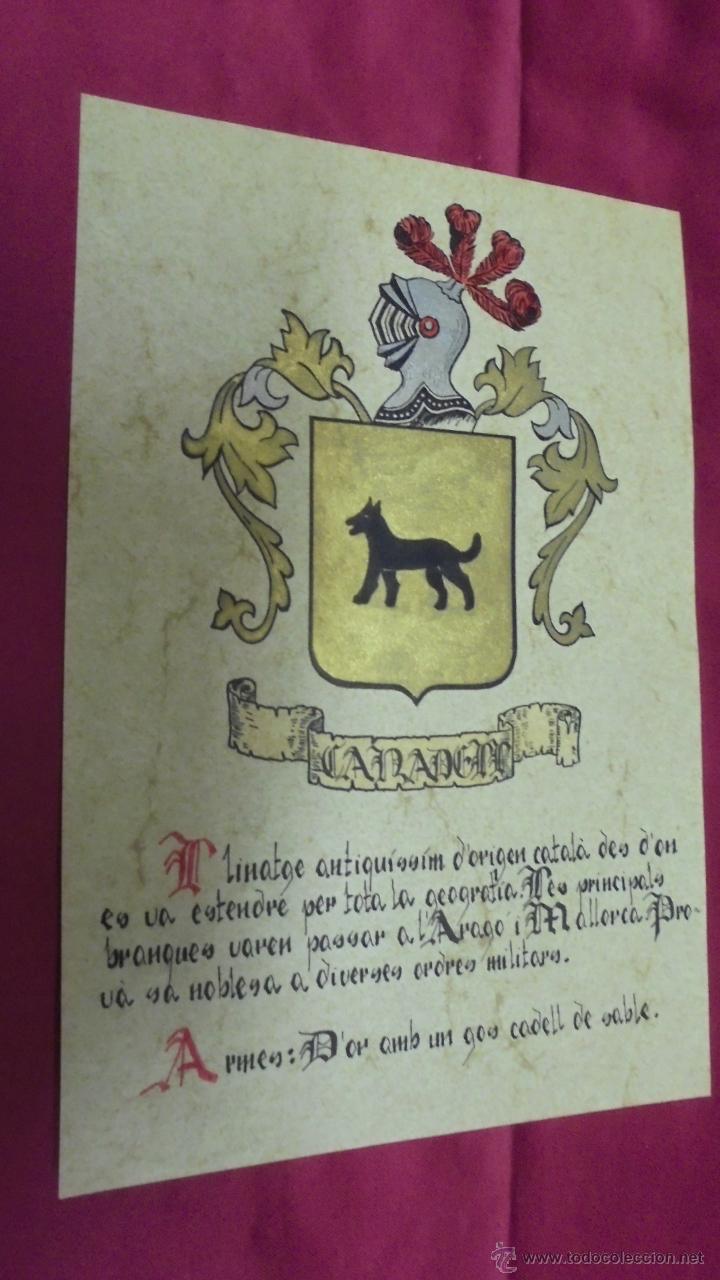 CANADELL
Llinatge antiquíssim d'origen català des d'on
es va estendre per tota la geografia. Les principals
branques varen passar a l'Aragó i Mallorca. Pro-
và sa noblesa a diverses ordres militars.
Armes: D'or amb un gos cadell de sable.
www.todocoleccion.net